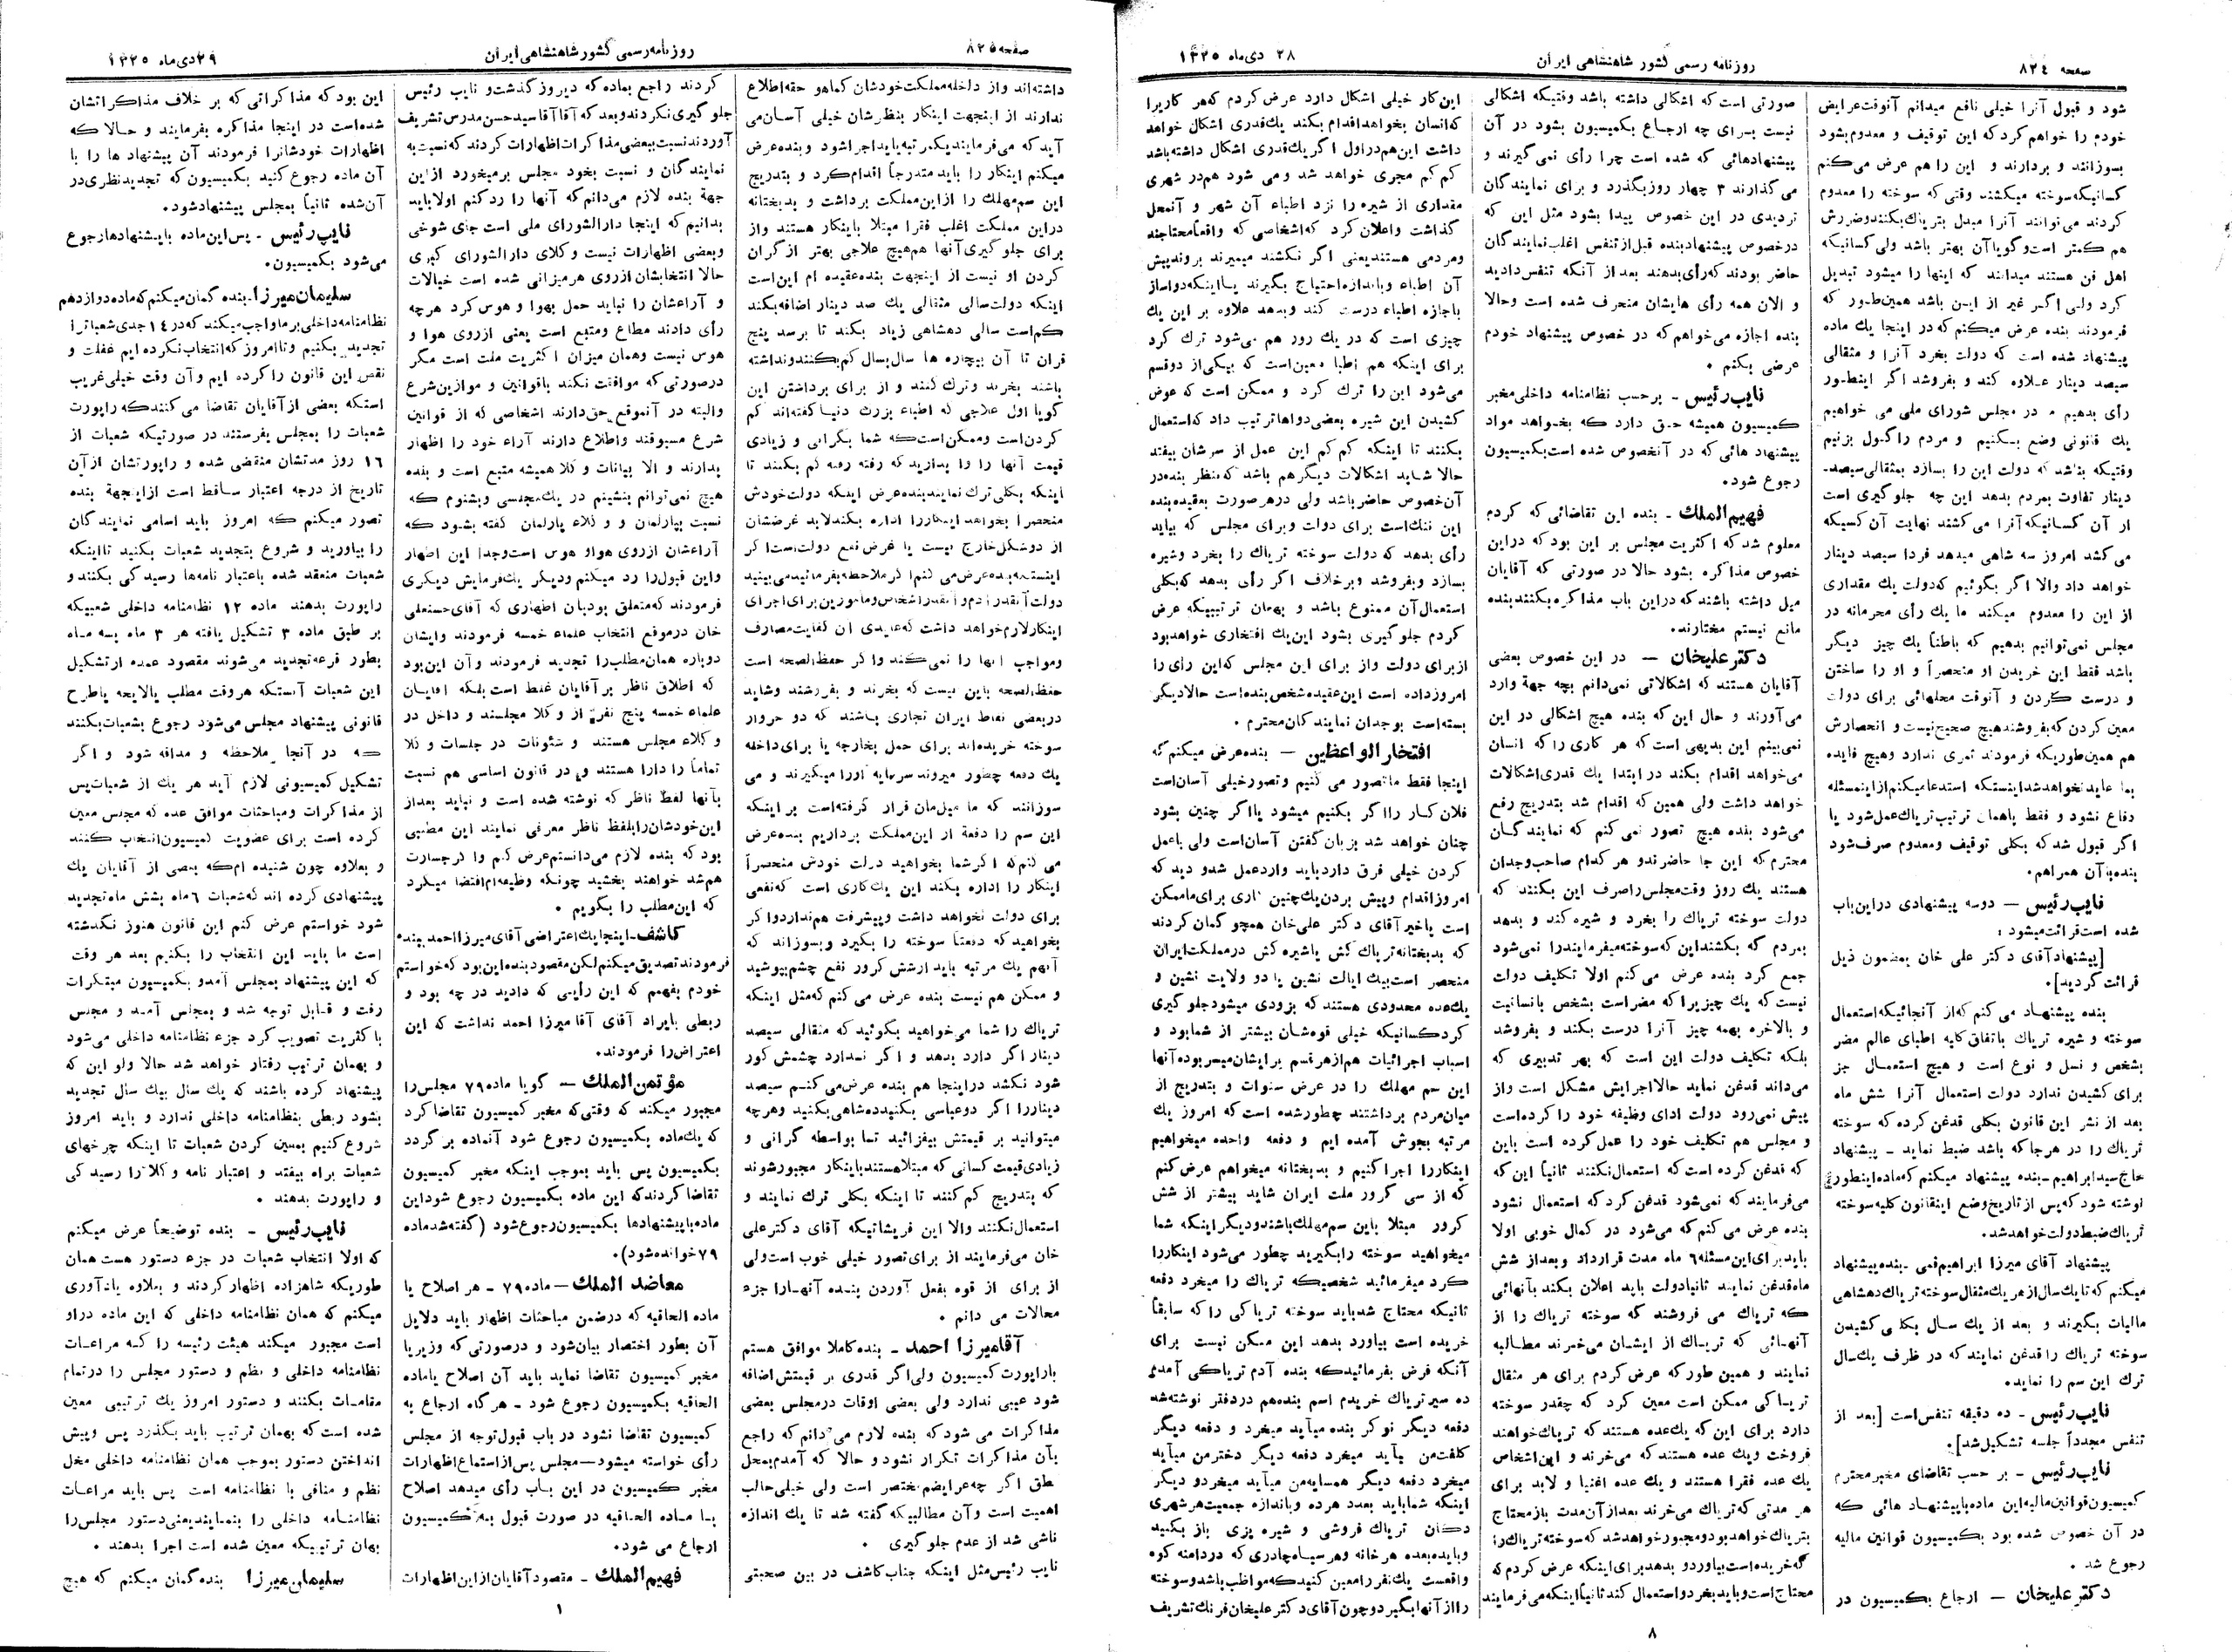 صفحه ۸۲٤
روزنامه رسمی کشور شاهنشاهی ایران
۲۸ دی‌ماه ۱۳۲۵
شود و قبول آنرا خیلی نافع میدانم آنوقت عرایض
خودم را خواهم کرد که این توقیف و معدوم بشود
بسوزانند و بردارند و این را هم عرض می‌کنم
کسانیکه سوخته میکشند وقتی که سوخته را معدوم
کردند می‌توانند آنرا مبدل بتریاك بکنند و ضررش
هم کمتر است و گویا آن بهتر باشد ولی کسانیکه
اهل فن هستند میدانند که اینها را میشود تبدیل
کرد ولی اگر غیر از این باشد همین‌طور که
فرمودند بنده عرض میکنم که در اینجا یك ماده
پیشنهاد شده است که دولت بخرد آنرا و مثقالی
سیصد دینار علاوه کند و بفروشد اگر اینطور
رأی بدهیم ما در مجلس شورای ملی می خواهیم
یك قانونی وضع بکنیم و مردم را گول بزنیم
وقتیکه بنا شد که دولت این را بسازد بمثقالی سیصد
دینار تفاوت بمردم بدهد این چه جلوگیری است
از آن کسانیکه آنرا می کشند نهایت آن کسیکه
می کشد امروز سه شاهی میدهد فردا سیصد دینار
خواهد داد والا اگر بگوئیم که دولت یك مقداری
از این را معدوم میکند ما یك رأی محرمانه در
مجلس نمی‌توانیم بدهیم که باطناً یك چیز دیگر
باشد فقط این خریدن او منحصراً و او را ساختن
و درست کردن و آنوقت محلهائی برای دولت
معین کردن که بفروشند هیچ صحیح نیست و انحصارش
هم همین طوریکه فرمودند ثمری ندارد و هیچ فایده
بما عاید نخواهد شد اینستکه استدعا میکنم از این مسئله
دفاع نشود و فقط با همان ترتیب تریاك عمل شود یا
اگر قبول شد که بکلی توقیف و معدوم صرف شود
بنده با آن همراهم.
نایب رئیس — دوسه پیشنهادی در این باب
شده است قرائت میشود :
[پیشنهاد آقای دکتر علی خان بمضمون ذیل
قرائت گردید].
بنده پیشنهاد می کنم که از آنجائیکه استعمال
سوخته و شیره تریاك باتفاق کلیه اطبای عالم مضر
بشخص و نسل و نوع است و هیچ استعمال جز
برای کشیدن ندارد دولت استعمال آنرا شش ماه
بعد از نشر این قانون بکلی قدغن کرده که سوخته
تریاك را در هر جا که باشد ضبط نماید – پیشنهاد
حاج سید ابراهیم – بنده پیشنهاد میکنم که ماده اینطور
نوشته شود که پس از تاریخ وضع اینقانون کلیه سوخته
تریاك ضبط دولت خواهد شد.
پیشنهاد آقای میرزا ابراهیم قمی - بنده پیشنهاد
میکنم که تا یك سال از هر یك مثقال سوخته تریاك دهشاهی
مالیات بگیرند و بعد از یك سال بکلی کشیدن
سوخته تریاك را قدغن نمایند که در ظرف یك سال
ترك این سم را نماید.
نایب رئیس - ده دقیقه تنفس است [بعد از
تنفس مجدداً جلسه تشکیل شد].
نایب رئیس - بر حسب تقاضای مخبر محترم
کمیسیون قوانین مالیه این ماده با پیشنهاد هائی که
در آن خصوص شده بود بکمیسیون قوانین مالیه
رجوع شد .
دکتر علیخان — ارجاع بکمیسیون در
صورتی است که اشکالی داشته باشد وقتیکه اشکالی
نیست برای چه ارجاع بکمیسیون بشود در آن
پیشنهادهائی که شده است چرا رأی نمی گیرند و
می گذارند ۳ چهار روز بگذرد و برای نمایندگان
تردیدی در این خصوص پیدا بشود مثل این که
درخصوص پیشنهاد بنده قبل از تنفس اغلب نمایندگان
حاضر بودند که رأی بدهند بعد از آنکه تنفس دادید
و الان همه رأی هایشان منحرف شده است و حالا
بنده اجازه می‌خواهم که در خصوص پیشنهاد خودم
عرضی بکنم .
نایب رئیس - برحسب نظامنامه داخلی مخبر
کمیسیون همیشه حق دارد که بخواهد مواد
پیشنهاد هائی که در آنخصوص شده است بکمیسیون
رجوع شود.
فهیم الملك - بنده این تقاضائی که کردم
معلوم شد که اکثریت مجلس بر این بود که در این
خصوص مذاکره بشود حالا در صورتی که آقایان
میل داشته باشند که در این باب مذاکره بکنند بنده
مانع نیستم مختارند.
دکتر علیخان — در این خصوص بعضی
آقایان هستند که اشکالاتی نمی‌دانم بچه جهة وارد
می‌آورند و حال این که بنده هیچ اشکالی در این
نمی‌بینم این بدیهی است که هر کاری را که انسان
می‌خواهد اقدام بکند در ابتدا یك قدری اشکالات
خواهد داشت ولی همین که اقدام شد بتدریج رفع
می‌شود بنده هیچ تصور نمی کنم که نمایندگان
محترم که این جا حاضرند و هر کدام صاحب وجدان
هستند یك روز وقت مجلس را صرف این بکنند که
دولت سوخته تریاك را بخرد و شیره کند و بدهد
بمردم که بکشند این که سوخته میفرمایند را نمی‌شود
جمع کرد بنده عرض می کنم اولا تکلیف دولت
نیست که یك چیزیرا که مضر است بشخص یا نسانیت
و بالاخره بهمه چیز آنرا درست بکند و بفروشد
بلکه تکلیف دولت این است که بهر تدبیری که
می‌داند قدغن نماید حالا اجرایش مشکل است و از
پیش نمی‌رود دولت ادای وظیفه خود را کرده است
و مجلس هم تکلیف خود را عمل کرده است باین
که قدغن کرده است که استعمال نکنند ثانیاً این که
می‌فرمایند که نمی‌شود قدغن کرد که استعمال نشود
بنده عرض می کنم که می‌شود در کمال خوبی اولا
باید برای این مسئله ۶ ماه مدت قرارداد و بعد از شش
ماه قدغن نمایند ثانیا دولت باید اعلان بکند بآنهائی
که تریاك می فروشند که سوخته تریاك را از
آنهائی که تریاك از ایشان می‌خرند مطالبه
نمایند و همین طور که عرض کردم برای هر مثقال
تریاکی ممکن است معین کرد که چقدر سوخته
دارد برای این که یك عده هستند که تریاك خواهند
فروخت و یك عده هستند که می‌خرند و این اشخاص
یك عده فقرا هستند و یك عده اغنیا و لابد برای
هر مدتی که تریاك می‌خرند بعد از آن مدت باز محتاج
بتریاك خواهد بود و مجبور خواهد شد که سوخته تریاك را
که خریده است بیاورد و بدهد برای اینکه عرض کردم که
محتاج است و باید بخرد و استعمال کند ثانیاً اینکه می‌فرمایند
این کار خیلی اشکال دارد عرض کردم که هر کاریرا
که انسان بخواهد اقدام بکند یك قدری اشکال خواهد
داشت این هم در اول اگر یك قدری اشکال داشته باشد
کم کم مجری خواهد شد و می شود هم در شهری
مقداری از شیره را نزد اطباء آن شهر و آنمحل
گذاشت و اعلان کرد که اشخاصی که واقعاً محتاجند
و مردمی هستند یعنی اگر نکشند میمیرند بروند پیش
آن اطباء و باندازه احتیاج بگیرند یا اینکه دواساز
باجازه اطباء درست کند و بدهد علاوه بر این یك
چیزی است که در یك روز هم می‌شود ترك کرد
برای اینکه هم اطبا معین است که بیکی از دو قسم
می‌شود این را ترك کرد و ممکن است که عوض
کشیدن این شیره بعضی دواها ترتیب داد که استعمال
بکنند تا اینکه کم کم این عمل از سرشان بیفتد
حالا شاید اشکالات دیگر هم باشد که منظر بنده در
آن خصوص حاضر باشد ولی در هر صورت بعقیده بنده
این ننگ است برای دولت و برای مجلس که بیاید
رأی بدهد که دولت سوخته تریاك را بخرد و شیره
بسازد و بفروشد و برخلاف اگر رأی بدهد که بکلی
استعمال آن ممنوع باشد و بهمان ترتیبیکه عرض
کردم جلوگیری بشود این یك افتخاری خواهد بود
از برای دولت و از برای این مجلس که این رأی را
امروز داده است این عقیده شخص بنده است حالا دیگر
بسته است بوجدان نمایندگان محترم .
افتخار الواعظین — بنده عرض میکنم که
اینجا فقط ما تصور می کنیم و تصور خیلی آسان است
فلان کار را اگر بکنیم میشود یا اگر چنین بشود
چنان خواهد شد بزبان گفتن آسان است ولی با عمل
کردن خیلی فرق دارد باید وارد عمل شد و دید که
امروز اقدام و پیش بردن یك چنین کاری برای ما ممکن
است یا خیر آقای دکتر علی خان همچو گمان کردند
که بدبختانه تریاك کش یا شیره کش در مملکت ایران
منحصر است بیك ایالت نشین یا دو ولایت نشین و
یك عده محدودی هستند که بزودی میشود جلوگیری
کرد کسانیکه خیلی قوه‌شان بیشتر از شما بود و
اسباب اجرائیات هم از هر قسم برایشان میسر بوده آنها
این سم مهلك را در عرض سنوات و بتدریج از
میان مردم برداشتند چطور شده است که امروز یك
مرتبه بجوش آمده ایم و دفعه واحده میخواهیم
اینکار را اجرا کنیم و بدبختانه میخواهم عرض کنم
که از سی کرور ملت ایران شاید بیشتر از شش
کرور مبتلا باین سم مهلك باشند و دیگر اینکه شما
میخواهید سوخته را بگیرید چطور می‌شود اینکار را
کرد میفرمائید شخصیکه تریاك را میخرد دفعه
ثانیکه محتاج شد باید سوخته تریاکی را که سابقاً
خریده است بیاورد بدهد این ممکن نیست برای
آنکه فرض بفرمائید که بنده آدم تریاکی آمدم
ده سیر تریاك خریدم اسم بنده هم در دفتر نوشته شد
دفعه دیگر نوکر بنده میآید میخرد و دفعه دیگر
کلفت من میآید میخرد دفعه دیگر دختر من میآید
میخرد دفعه دیگر همسایه من میآید میخرد و دیگر
اینکه شما باید بعدد هر ده و باندازه جمعیت هر شهری
دکان تریاك فروشی و شیره پزی باز بکنید
و باید بعده هر خانه و هر سیاه چادری که در دامنه کوه
واقعست یك نفر را معین کنید که مواظب باشد و سوخته
را از آنها بگیرد و چون آقای دکتر علیخان فرنك تشریف
۸
صفحه ۸۲۵
روزنامه رسمی کشور شاهنشاهی ایران
۲۹ دی‌ماه ۱۳۲۵
داشته‌اند و از داخله مملکت خودشان کماهو حقه اطلاع
ندارند از اینجهت اینکار بنظرشان خیلی آسان می
آید که می‌فرمایند یکمرتبه باید اجرا شود و بنده عرض
میکنم اینکار را باید متدرجاً اقدام کرد و بتدریج
این سم مهلك را از این مملکت برداشت و بدبختانه
در این مملکت اغلب فقرا مبتلا باینکار هستند و از
برای جلوگیری آنها هم هیچ علاجی بهتر از گران
کردن او نیست از اینجهت بنده عقیده ام این است
اینکه دولت سالی مثقالی یك صد دینار اضافه بکند
کم است سالی دهشاهی زیاد بکند تا برسد پنج
قران تا آن بیچاره ها سال بسال کم بکنند و نداشته
باشند بخرند و ترك کنند و از برای برداشتن این
گویا اول علاجی که اطباء بزرگ دنیا گفته‌اند کم
کردن است و ممکن است که شما بگرانی و زیادی
قیمت آنها را وا بدارید که رفته رفته کم بکنند تا
اینکه بکلی ترك نمایند بنده عرض اینکه دولت خودش
منحصراً بخواهد اینکار را اداره بکند لابد غرضشان
از دو شکل خارج نیست یا غرض نفع دولت است اگر
اینست بنده عرض می کنم اگر ملاحظه بفرمائید می‌بینید
دولت آنقدر آدم و آنقدر اشخاص و مأمورین برای اجرای
اینکار لازم خواهد داشت که عایدی آن کفایت مصارف
و مواجب آنها را نمی کند و اگر حفظ الصحه است
حفظ الصحه باین نیست که بخرند و بفروشند و شاید
در بعضی نقاط ایران تجاری باشند که دو خروار
سوخته خریده‌اند برای حمل بخارجه یا برای داخله
یك دفعه چطور میروند سرمایه او را میگیرند و می
سوزانند که ما میل‌مان قرار گرفته است بر اینکه
این سم را دفعة از این مملکت برداریم بنده عرض
می کنم که اگر شما بخواهید دولت خودش منحصراً
اینکار را اداره بکند این یك کاری است که نفعی
برای دولت نخواهد داشت و پیشرفت هم ندارد و اگر
بخواهید که دفعتاً سوخته را بگیرد و بسوزاند که
آنهم یك مرتبه باید از شش کرور نفع چشم بپوشید
و ممکن هم نیست بنده عرض می کنم که مثل اینکه
تریاك را شما می‌خواهید بگوئید که مثقالی سیصد
دینار اگر دارد بدهد و اگر ندارد چشمش کور
شود نکشد در اینجا هم بنده عرض می کنم سیصد
دینار را اگر دو عباسی بکنید ده شاهی بکنید و هرچه
میتوانید بر قیمتش بیفزائید تا بواسطه گرانی و
زیادی قیمت کسانی که مبتلا هستند باینکار مجبور شوند
که بتدریج کم کنند تا اینکه بکلی ترك نمایند و
استعمال نکنند والا این فرمایشاتیکه آقای دکتر علی
خان می‌فرمایند از برای تصور خیلی خوب است ولی
از برای از قوه بفعل آوردن بنده آنها را جزء
محالات می دانم .
آقا میرزا احمد - بنده کاملا موافق هستم
با راپورت کمیسیون ولی اگر قدری بر قیمتش اضافه
شود عیبی ندارد ولی بعضی اوقات در مجلس بعضی
مذاکرات می شود که بنده لازم می‌دانم که راجع
بآن مذاکرات تکرار نشود و حالا که آمدم بمحل
نطق اگر چه عرایضم مختصر است ولی خیلی جالب
اهمیت است و آن مطالبیکه گفته شد تا یك اندازه
ناشی شد از عدم جلوگیری .
نایب رئیس مثل اینکه جناب کاشف در بین صحبتی
کردند راجع بماده که دیروز گذشت و نایب رئیس
جلوگیری نکردند و بعد که آقا آقا سید حسن مدرس تشریف
آوردند نسبت ببعضی مذاکرات اظهارات کردند که نسبت به
نمایندگان و نسبت بخود مجلس برمیخورد از این
جهة بنده لازم می‌دانم که آنها را رد کنم اولا باید
بدانیم که اینجا دارالشورای ملی است جای شوخی
و بعضی اظهارات نیست و کلای دارالشورای کبری
حالا انتخابشان از روی هر میزانی شده است خیالات
و آراءشان را نباید حمل بهوا و هوس کرد هر چه
رأی دادند مطاع و متبع است یعنی از روی هوا و
هوس نیست و همان میزان اکثریت ملت است مگر
درصورتی که موافقت نکند باقوانین و موازین شرع
والبته در آنموقع حق دارند اشخاصی که از قوانین
شرع مسبوقند و اطلاع دارند آراء خود را اظهار
بدارند و الا بیانات وکلا همیشه متبع است و بنده
هیچ نمی‌توانم بنشینم در یك مجلسی و بشنوم که
نسبت بپارلمان و وکلاء پارلمان گفته بشود که
آراءشان از روی هوا و هوس است و جداً این اظهار
و این قبول را رد میکنم و دیگر یك فرمایش دیگری
فرمودند که متعلق بود بآن اظهاری که آقای حسنعلی
خان در موقع انتخاب علماء خمسه فرمودند و ایشان
دوباره همان مطلب را تجدید فرمودند و آن این بود
که اطلاق ناظر بر آقایان غلط است بلکه آقایان
علماء خمسه پنج نفری از وکلا مجلسند و داخل در
وکلاء مجلس هستند و شئونات در جلسات و کلا
تماماً را دارا هستند و در قانون اساسی هم نسبت
بآنها لفظ ناظر که نوشته شده است و نباید بعد از
این خودشان را بلفظ ناظر معرفی نمایند این مطلبی
بود که بنده لازم می‌دانستم عرض کنم و اگر جسارت
هم شد خواهند بخشید چونکه وظیفه‌ام اقتضا میکرد
که این مطلب را بگویم .
کاشف - اینجا یك اعتراضی آقای میرزا احمد ببنده
فرمودند تصدیق میکنم لکن مقصود بنده این بود که خواستم
خودم بفهمم که این رأیی که دادید در چه بود و
ربطی بایراد آقای آقا میرزا احمد نداشت که این
اعتراض را فرمودند.
مؤتمن الملك — گویا ماده ۷۹ مجلس را
مجبور میکند که وقتی که مخبر کمیسیون تقاضا کرد
که یك ماده بکمیسیون رجوع شود آنماده برگردد
بکمیسیون پس باید بموجب اینکه مخبر کمیسیون
تقاضا کردند که این ماده بکمیسیون رجوع شود این
ماده با پیشنهادها بکمیسیون رجوع شود (گفته شد ماده
۷۹ خوانده شود).
معاضد الملك — ماده ۷۹ - هر اصلاح یا
ماده الحاقیه که درضمن مباحثات اظهار باید دلایل
آن بطور اختصار بیان شود و درصورتی که وزیر یا
مخبر کمیسیون تقاضا نماید باید آن اصلاح یا ماده
الحاقیه بکمیسیون رجوع شود - هر گاه ارجاع به
کمیسیون تقاضا نشود در باب قبول توجه از مجلس
رأی خواسته میشود — مجلس پس از استماع اظهارات
مخبر کمیسیون در این باب رأی میدهد اصلاح
یا ماده الحاقیه در صورت قبول به کمیسیون
ارجاع می شود.
فهیم الملك - مقصود آقایان از این اظهارات
این بود که مذاکراتی که بر خلاف مذاکراتشان
شده است در اینجا مذاکره بفرمایند و حالا که
اظهارات خودشانرا فرمودند آن پیشنهاد ها را با
آن ماده رجوع کنید بکمیسیون که تجدید نظری در
آن شده ثانیاً بمجلس پیشنهاد شود.
نایب رئیس - پس این ماده با پیشنهادها رجوع
می‌شود بکمیسیون.
سلیمان میرزا - بنده گمان میکنم که ماده دوازدهم
نظامنامه داخلی بر ما واجب میکند که در ۱٤ جدی شعبات را
تجدید بکنیم و تا امروز که انتخاب نکرده ایم غفلت و
نقص این قانون را کرده ایم و آن وقت خیلی غریب
استکه بعضی از آقایان تقاضا می کنند که راپورت
شعبات را بمجلس بفرستند در صورتیکه شعبات از
۱۶ روز مدتشان منقضی شده و راپورتشان از آن
تاریخ از درجه اعتبار ساقط است از اینجهة بنده
تصور میکنم که امروز باید اسامی نمایندگان
را بیاورید و شروع بتجدید شعبات بکنید تا اینکه
شعبات منعقد شده باعتبار نامه‌ها رسیدگی بکنند و
راپورت بدهند ماده ۱۲ نظامنامه داخلی شعبیکه
بر طبق ماده ۳ تشکیل یافته هر ۳ ماه بسه ماه
بطور قرعه تجدید می‌شوند مقصود عمده از تشکیل
این شعبات آنستکه هر وقت مطلب یا لایحه یا طرح
قانونی پیشنهاد مجلس می‌شود رجوع بشعبات بکنند
که در آنجا ملاحظه و مداقه شود و اگر
تشکیل کمیسیونی لازم آید هر یك از شعبات پس
از مذاکرات و مباحثات موافق عده که مجلس معین
کرده است برای عضویت کمیسیون انتخاب کنند
و بعلاوه چون شنیده ام که بعضی از آقایان یك
پیشنهادی کرده اند که شعبات ۶ ماه بشش ماه تجدید
شود خواستم عرض کنم این قانون هنوز نگذشته
است ما باید این انتخاب را بکنیم بعد هر وقت
که این پیشنهاد بمجلس آمد و بکمیسیون مبتکرات
رفت و قابل توجه شد و بمجلس آمد و مجلس
با کثریت تصویب کرد جزء نظامنامه داخلی می‌شود
و بهمان ترتیب رفتار خواهد شد حالا ولو این که
پیشنهاد کرده باشند که یك سال بیك سال تجدید
بشود ربطی بنظامنامه داخلی ندارد و باید امروز
شروع کنیم بمعین کردن شعبات تا اینکه چرخهای
شعبات براه بیفتد و اعتبار نامه وکلا را رسیدگی
و راپورت بدهند .
نایب رئیس - بنده توضیحاً عرض میکنم
که اولا انتخاب شعبات در جزء دستور هست همان
طوریکه شاهزاده اظهار کردند و بعلاوه یادآوری
میکنم که همان نظامنامه داخلی که این ماده در او
است مجبور میکند هیئت رئیسه را که مراعات
نظامنامه داخلی و نظم و دستور مجلس را در تمام
مقامات بکنند و دستور امروز یك ترتیبی معین
شده است که بهمان ترتیب باید بگذرد پس و پیش
انداختن دستور بموجب همان نظامنامه داخلی مخل
نظم و منافی با نظامنامه است پس باید مراعات
نظامنامه داخلی را بنمایند یعنی دستور مجلس را
بهمان ترتیبیکه معین شده است اجرا بدهند .
سلیمان میرزا بنده گمان میکنم که هیچ
۱